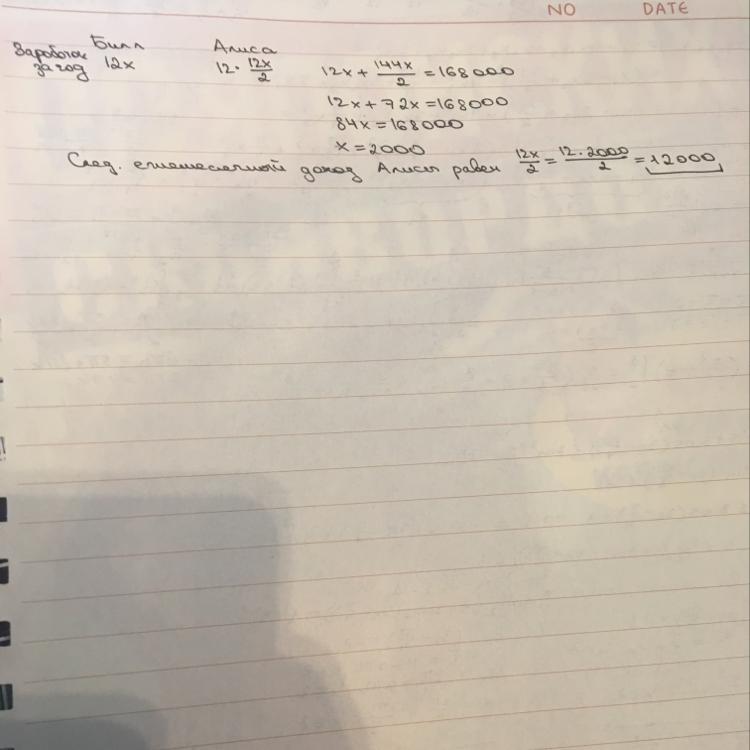 NO DATE
Билл Алиса
Заработок за год 12x 12·12x/2 12x+144x/2=168000
12x+72x=168000
84x=168000
x=2000
След. ежемесячный доход Алисы равен 12x/2=12·2000/2=12000